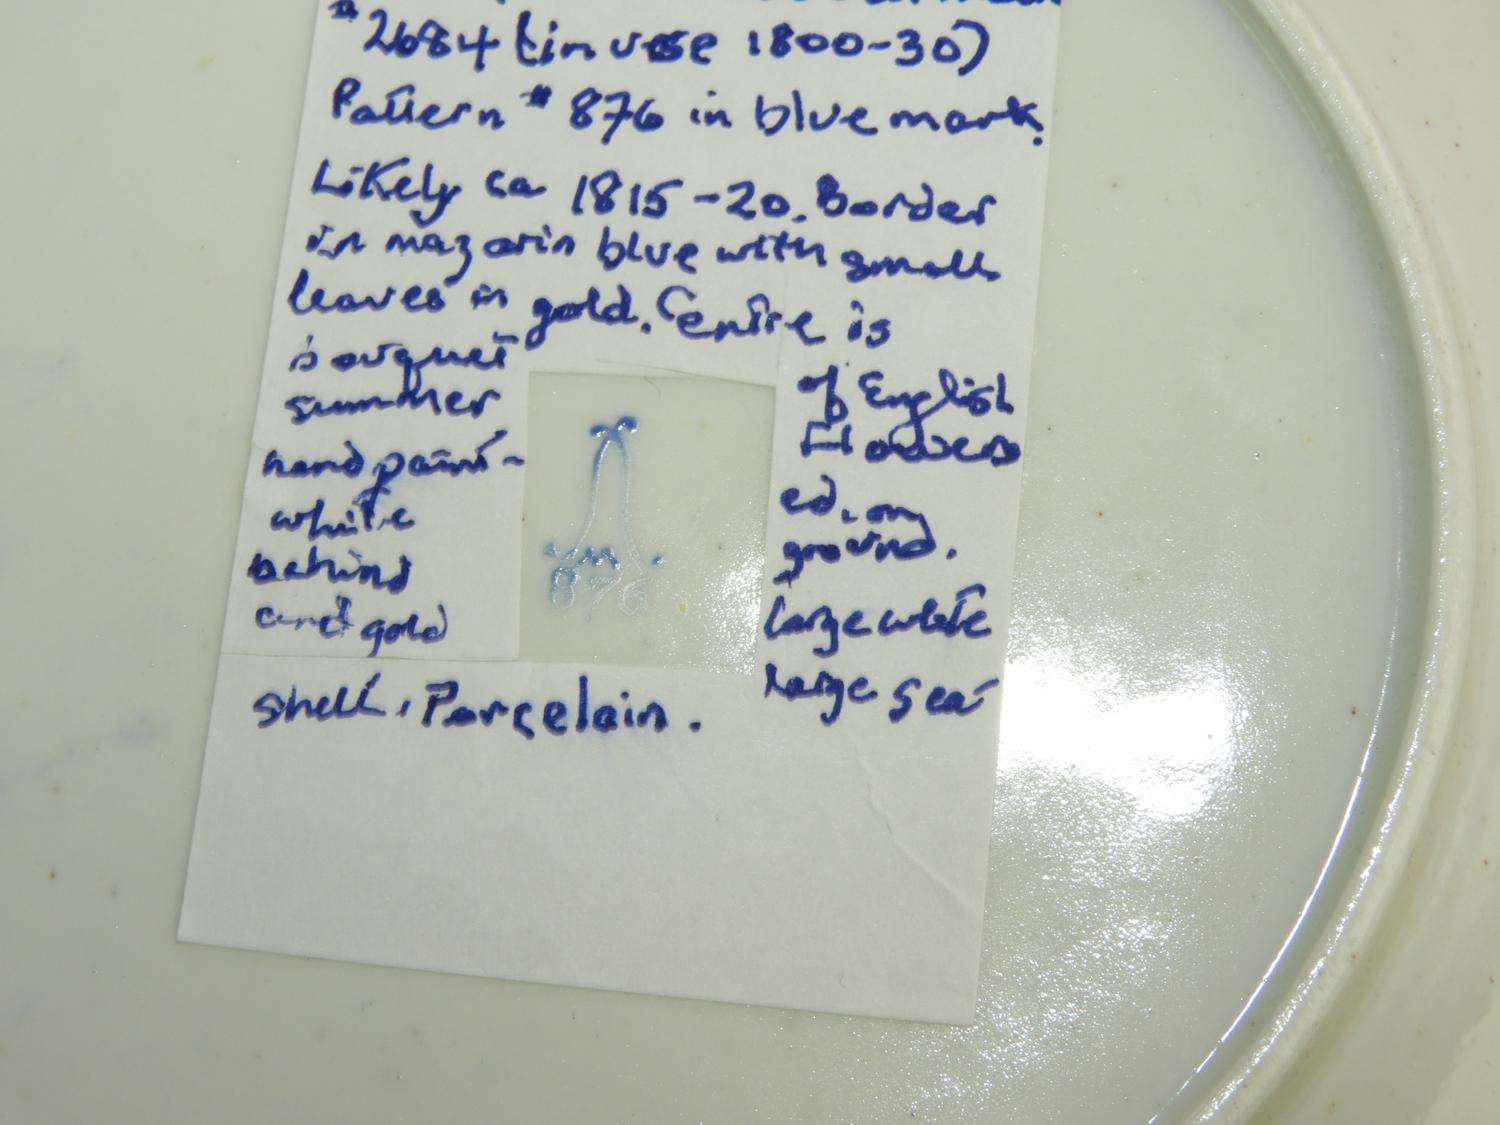 #2684 (in use 1800-30)
Pattern # 876 in blue mark.
Likely ca 1815-20. Border
in mazarin blue with small
leaves in gold. Centre is
bouquet of English
summer Flowers
hand paint- ed, on
white ground.
behind large white
and gold large sea
shell. Porcelain.
M
876